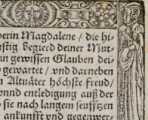 herin Magdalene / die hi-
nstig begierd deiner Mut-
an gewissen Glauben dei-
gewartet / und darneben
n Altväter höchste freud /
unnd entledigung auß der
sie nach langem seufftzen
ankunfft und gegenwer-